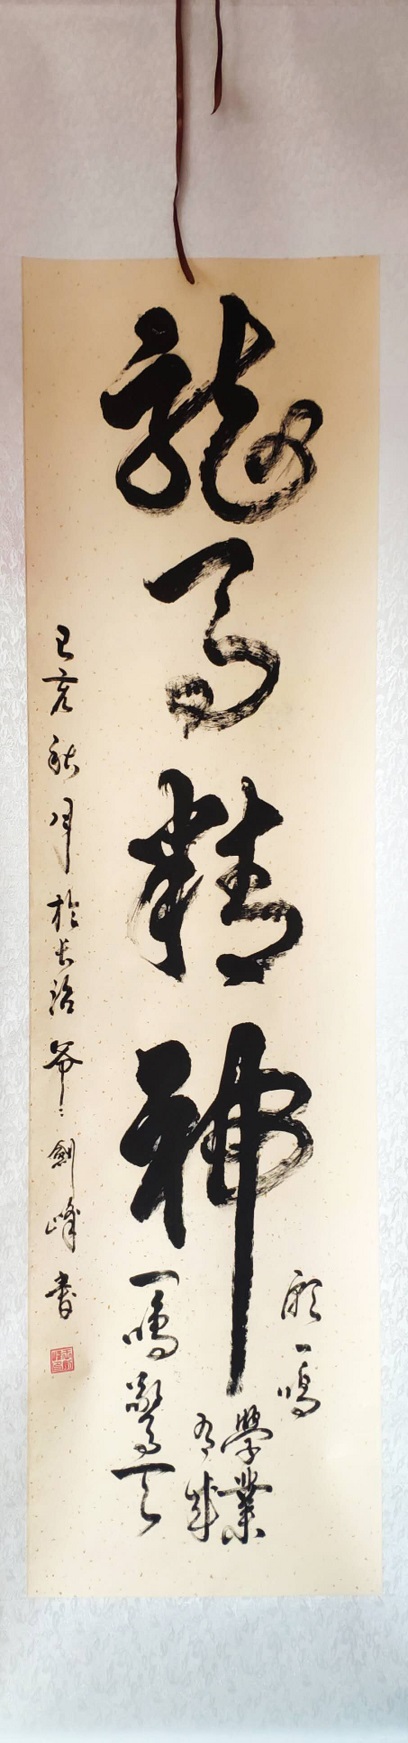 龍馬精神
願一鳴
學業
有成
一鳴驚天
己亥秋月於長治爷〻劍峰書